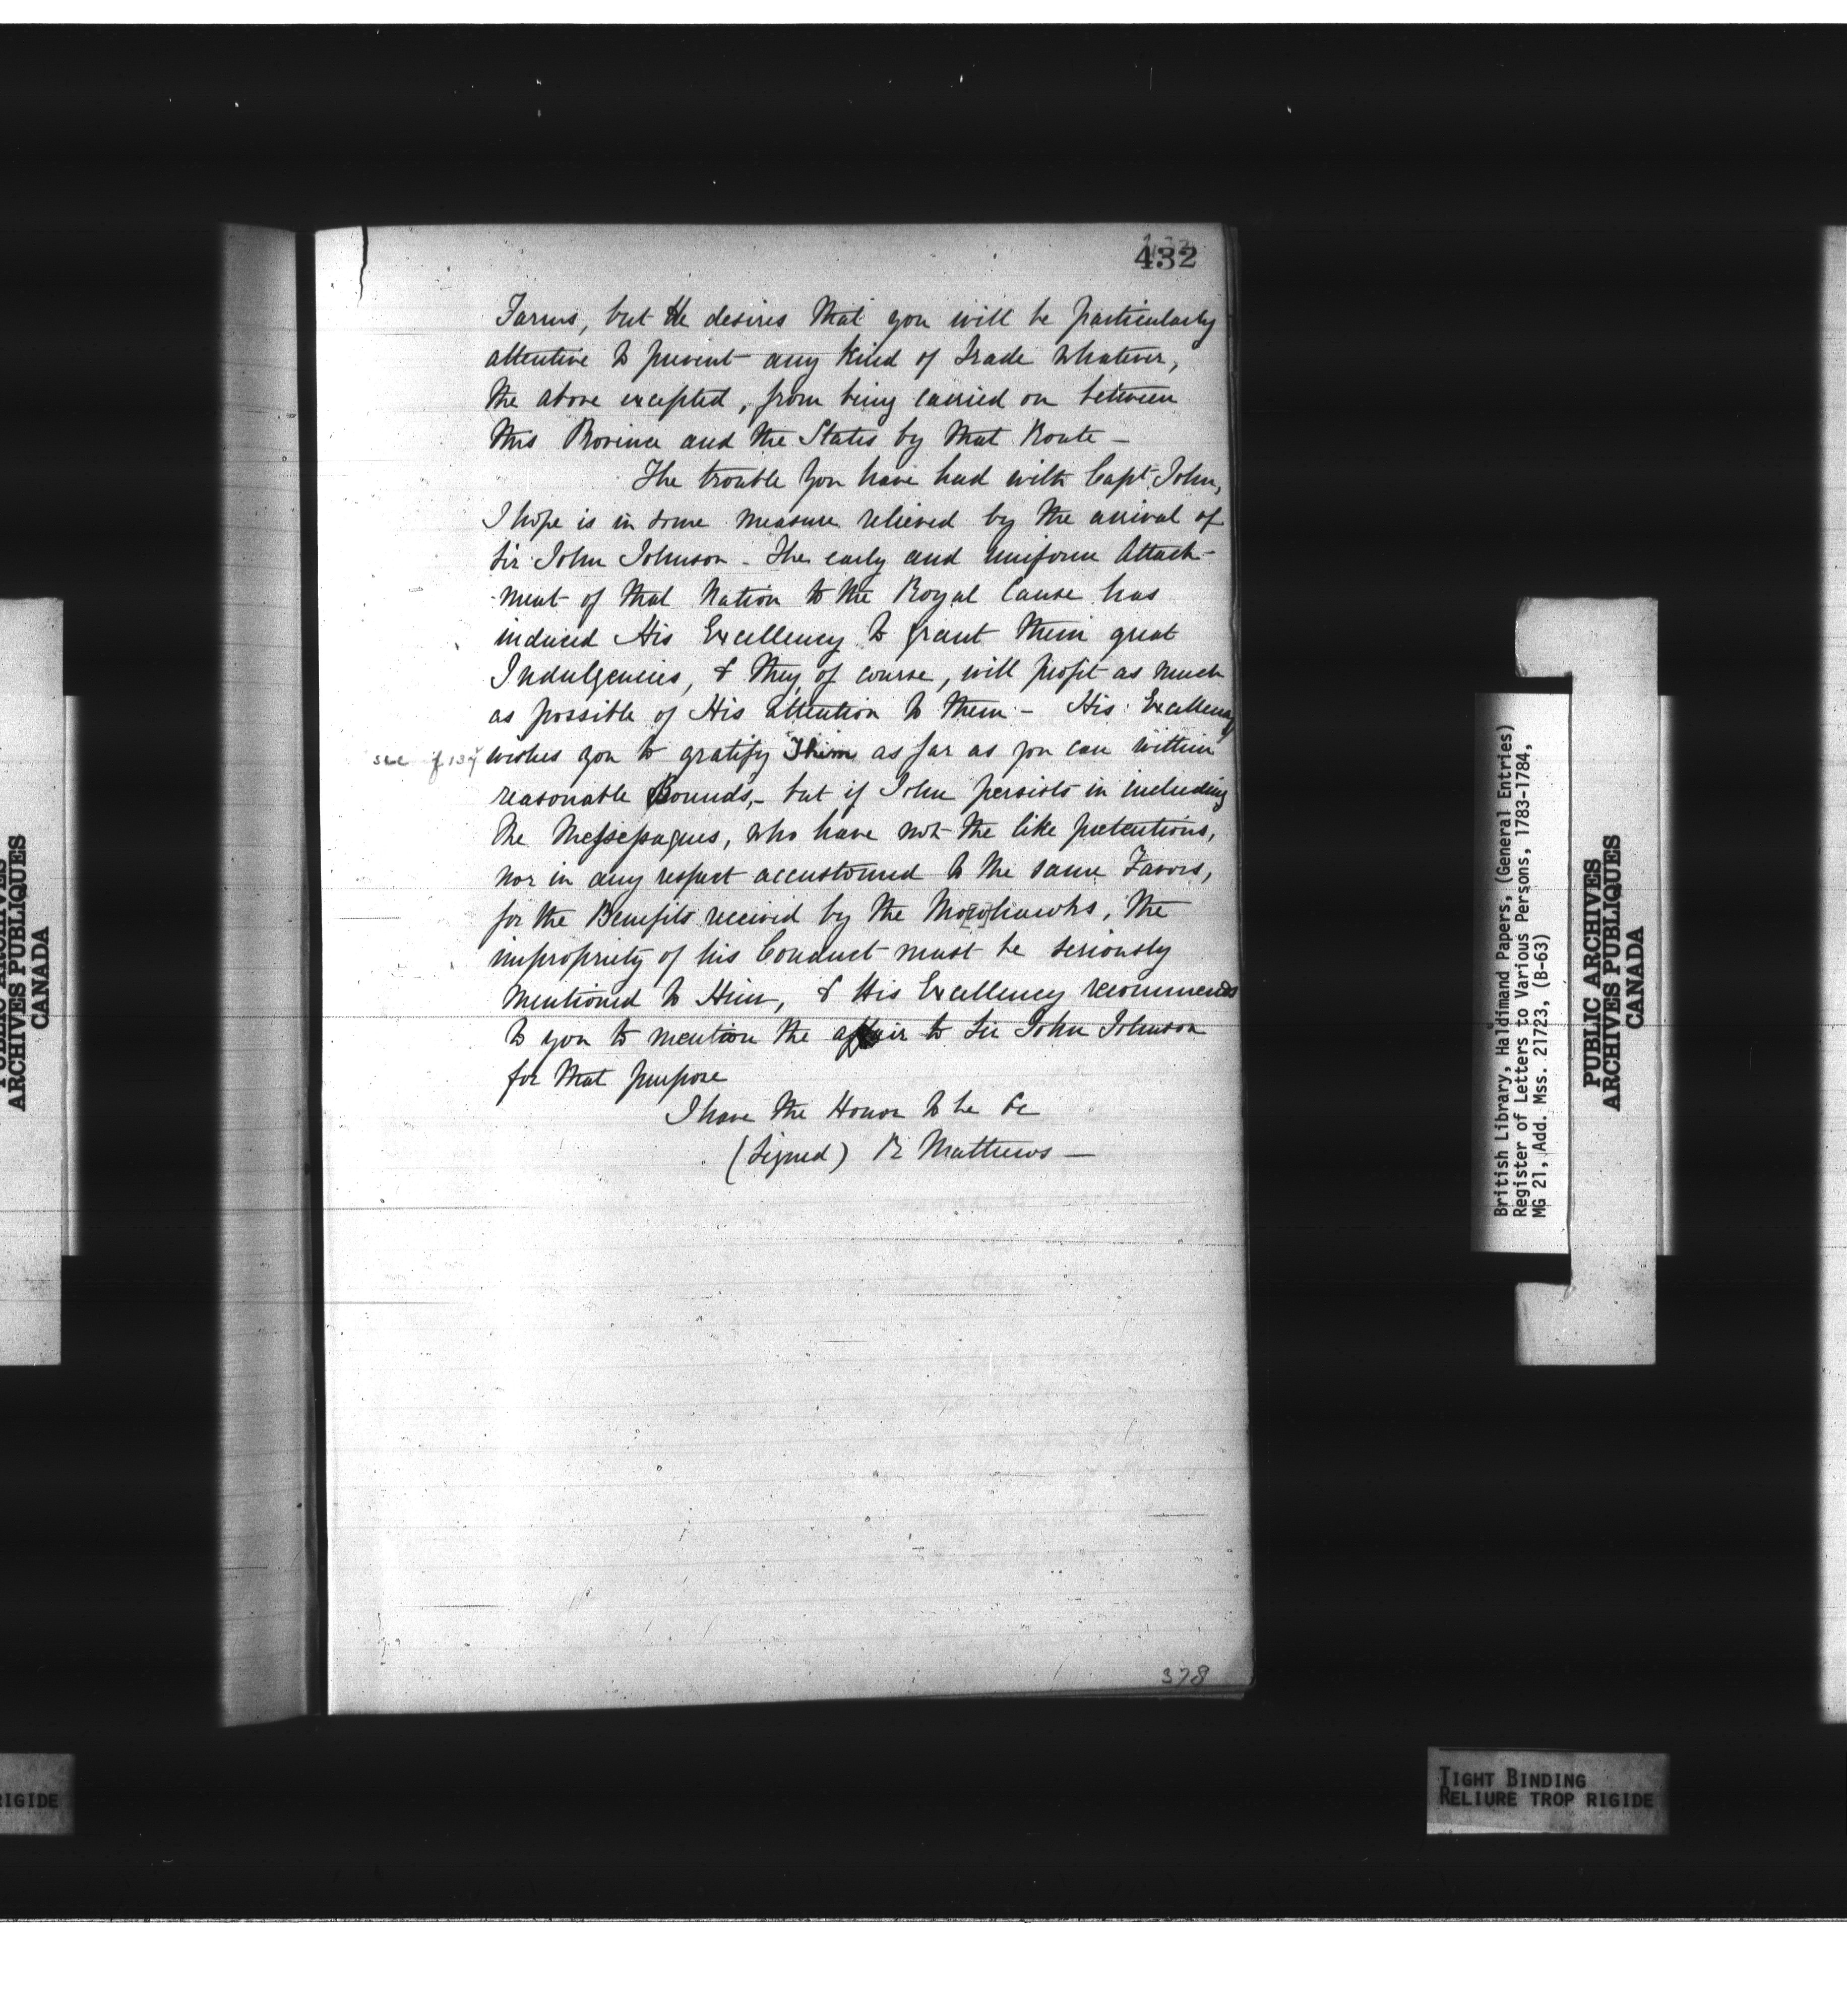 432
Farms, but He desires that you will be particularly
attentive to prevent any kind of Trade whatever,
the above excepted, from being carried on between
this Province and the States by that Route –
The trouble you have had with Capt. John,
I hope is in some measure relieved by the arrival of
Sir John Johnson – The early and uniform Attach-
-ment of that Nation to the Royal Cause has
induced His Excellency to grant them great
Indulgencies, & they, of course, will profit as much
as possible of His attention to them – His Excellency
see f. 137
wishes you to gratify Them as far as you can within
reasonable Bounds, – but if John persists in including
the Messessagues, who have not the like pretentions,
nor in any respect accustomed to the same Favors,
for the Benefits received by the Mo[]hawks, the
impropriety of his Conduct must be seriously
mentioned to Him, & His Excellency recommends
to you to mention the affair to Sir John Johnson
for that purpose
I have the Honor to be &c
(Signed) R Mathews –
378
British Library, Haldimand Papers, (General Entries)
Register of Letters to Various Persons, 1783-1784,
MG 21, Add. Mss. 21723, (B-63)
PUBLIC ARCHIVES
ARCHIVES PUBLIQUES
CANADA
TIGHT BINDING
RELIURE TROP RIGIDE
PUBLIC ARCHIVES
ARCHIVES PUBLIQUES
CANADA
RIGIDE